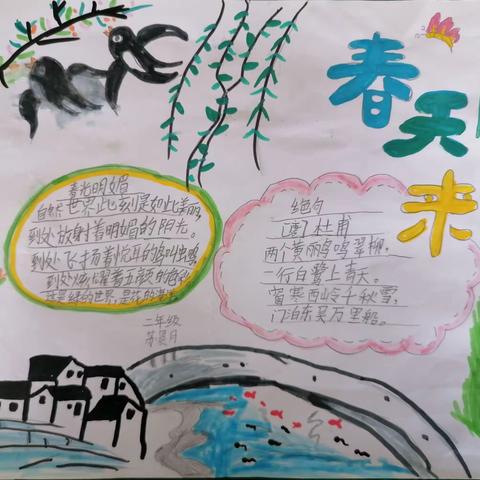 春天来
春光明媚
自然世界此刻是如此美丽,
到处放射着明媚的阳光。
到处飞扬着悦耳的鸟叫虫鸣
到处炫耀着五颜的色彩
这是绿的世界,是花的海
二年级
绝句
[唐]杜甫
两个黄鹂鸣翠柳,
一行白鹭上青天。
窗寒西岭千秋雪,
门泊东吴万里船。